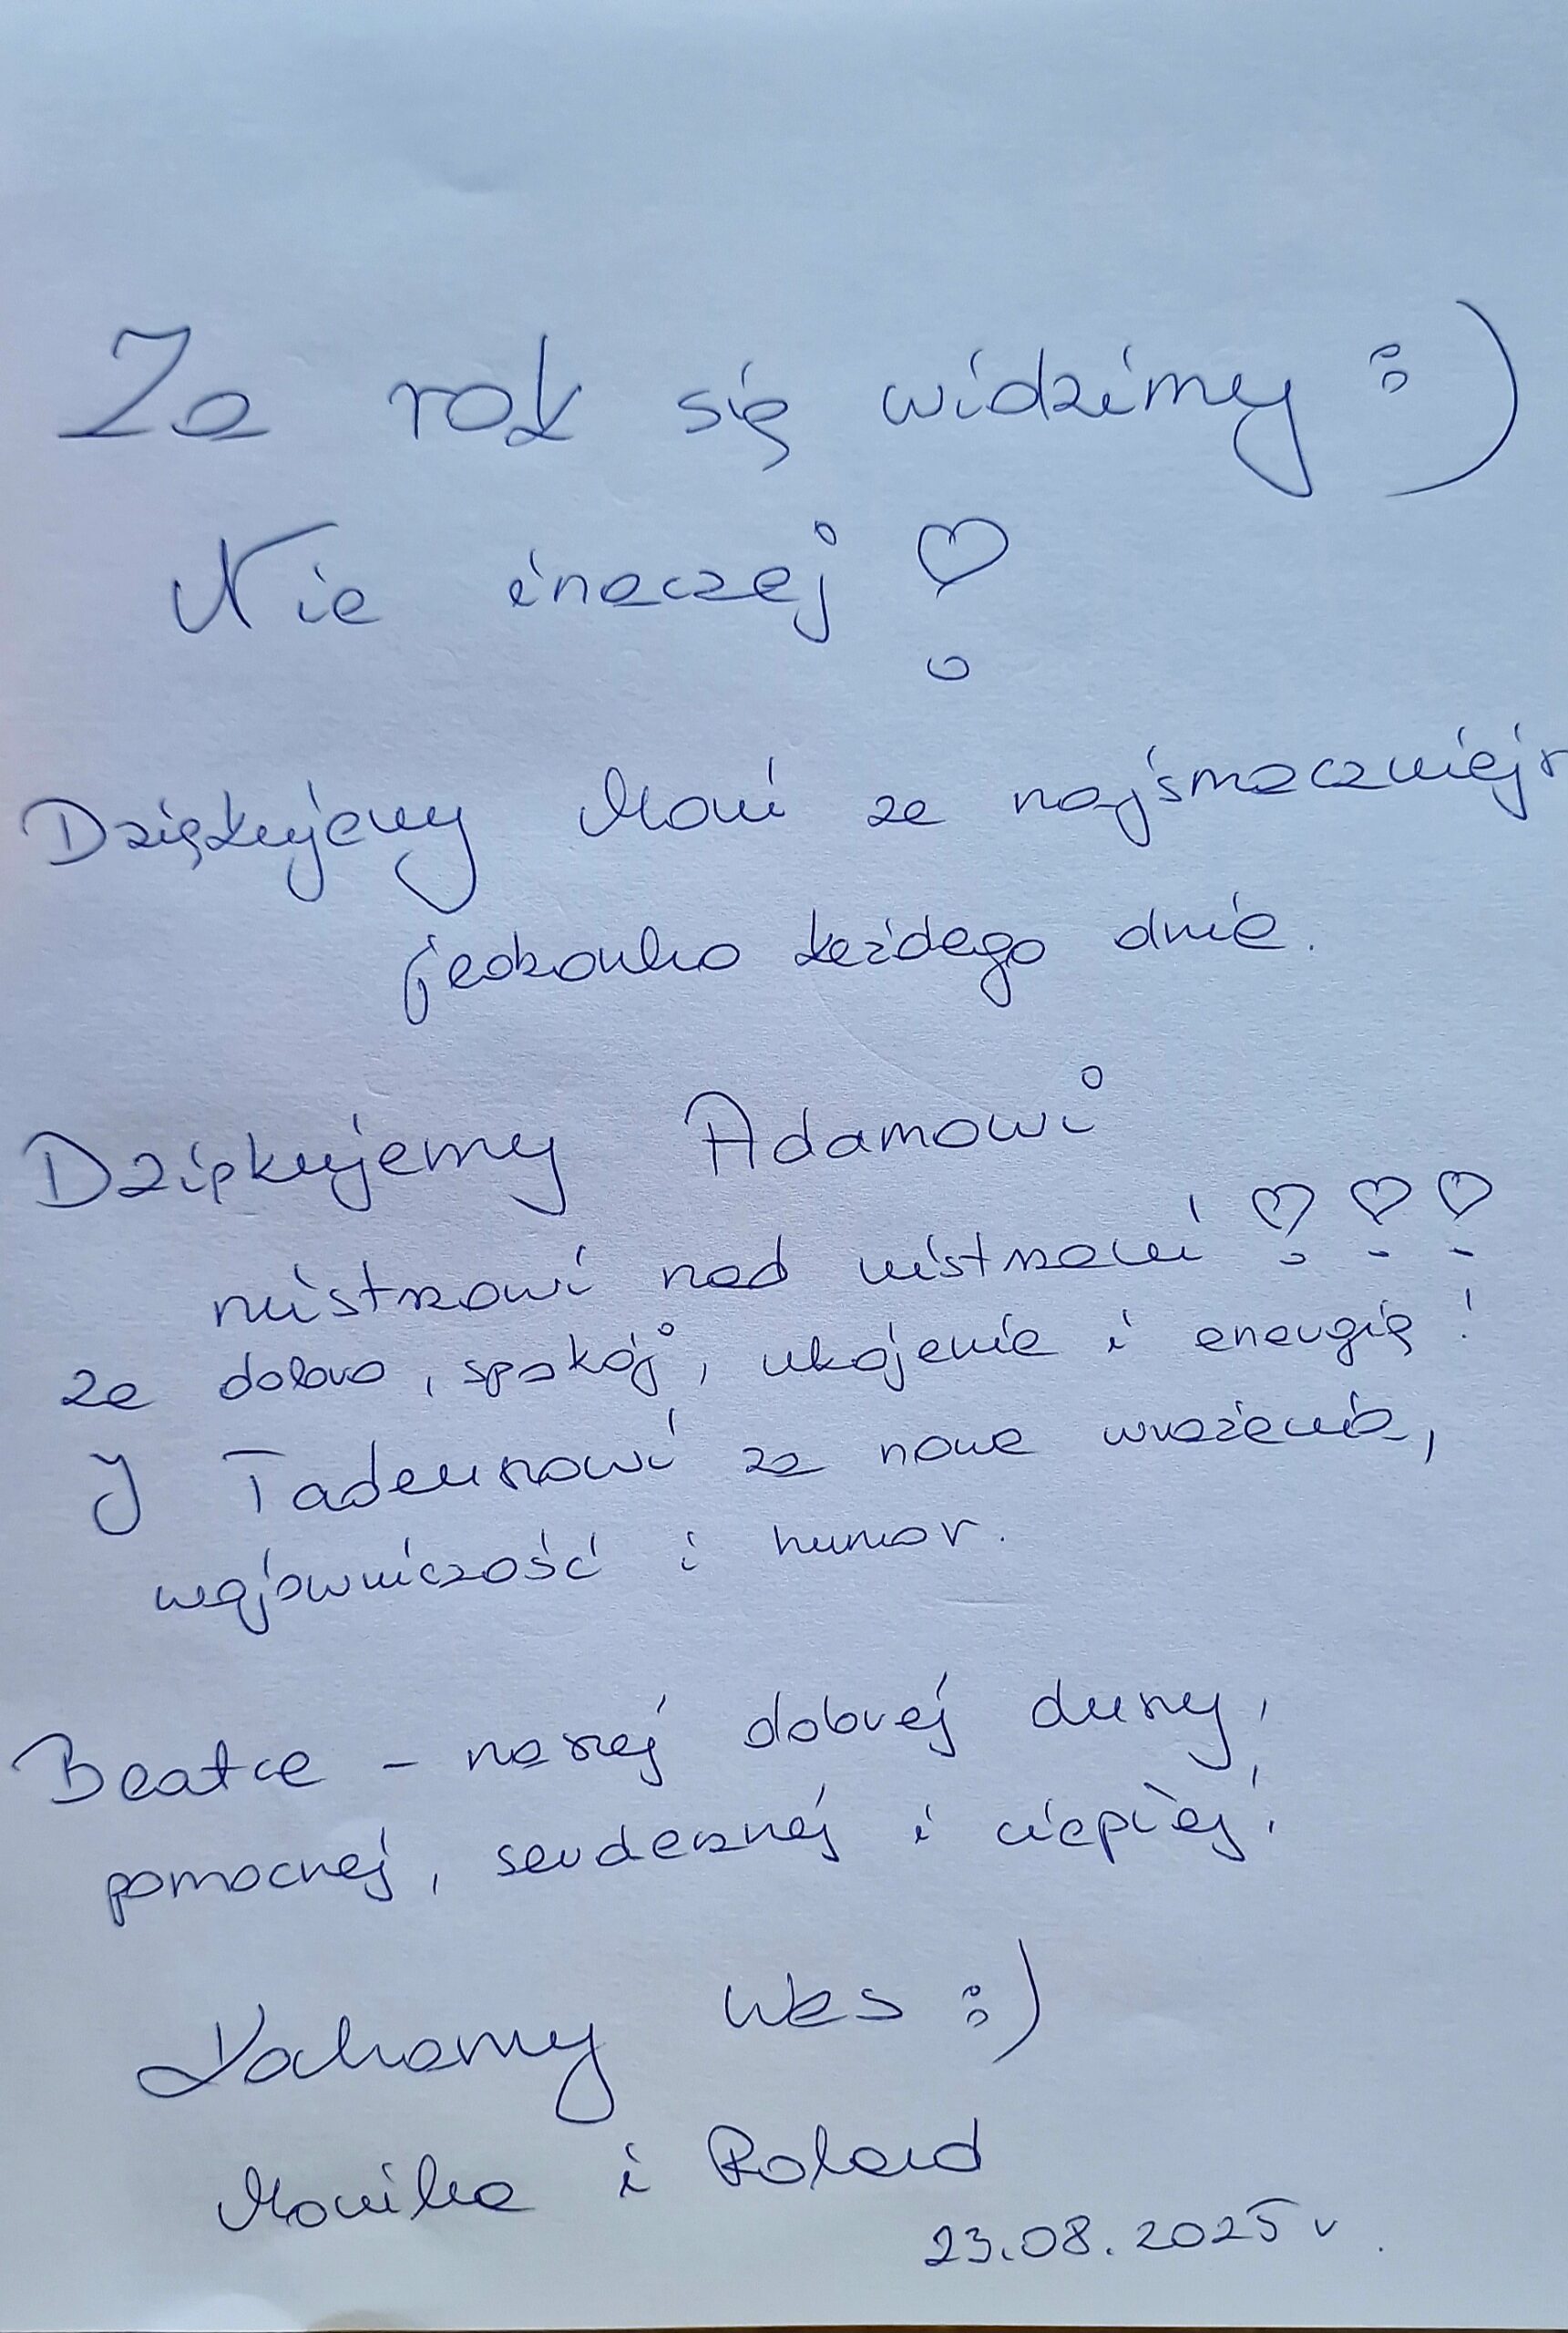 Za rok się widzimy :)
Nie inaczej
Dziękujemy Moni za najsmaczniejs
jedzonko każdego dnia.
Dziękujemy Adamowi
mistrzowi nad mistrzami
za dobro, spokój, ukojenie i energię!
I Tadeuszowi za nowe wrażenia,
wojowniczość i humor.
Beatce - naszej dobrej duszy,
pomocnej, serdecznej i ciepłej!
Kochamy Was :)
Monika i Roland
23.08.2025 r.